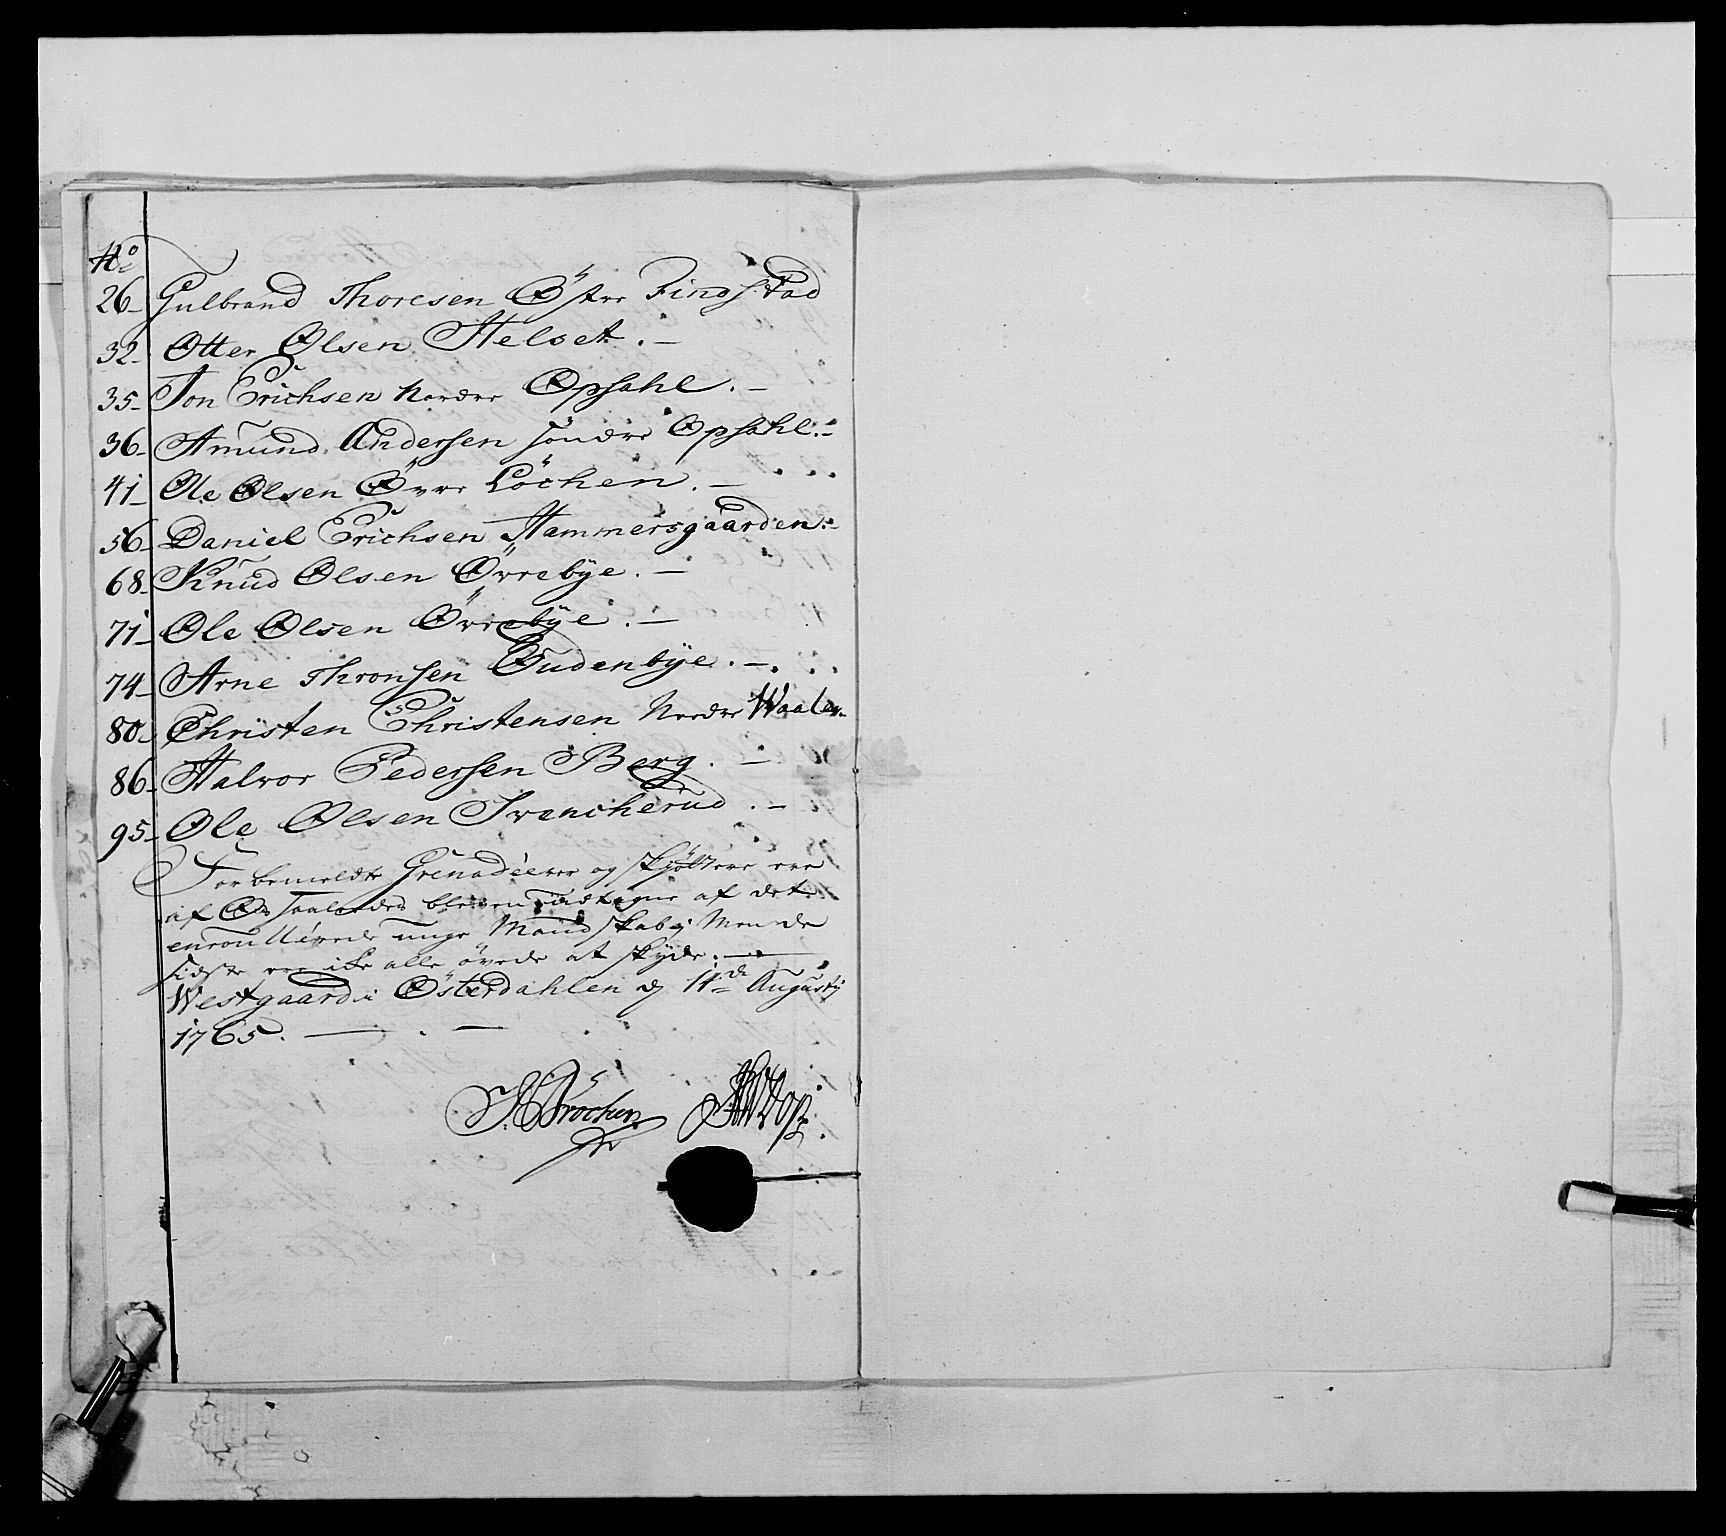 No
26 Gulbrand Thoresen Öster Findstad
32 Otter Olsen Helset.
35 Jon Erichsen Nordre Opsahl.
36 Amund Andersen Söndre Opsahl.
41 Ole Olsen Övre Löchen.
56 Daniel Erichsen Hammersgaarden.
68 Knud Olsen Övrebye.
71 Ole Olsen Övrebye.
74 Arne Thronsen Oudenbye.
80 Christen Christensen Nordre Waaler
86 Halvor Pedersen Berg.
95 Ole Olsen Svencherud.
Forbemeldte Grenadierer og Skyttere ere
af blewen udtagne af det
enroullerede unge Mandskab; Men de
sidste ere icke alle övede at skyde.
Westgaard i Österdahlen d 11de Augusty
1765.